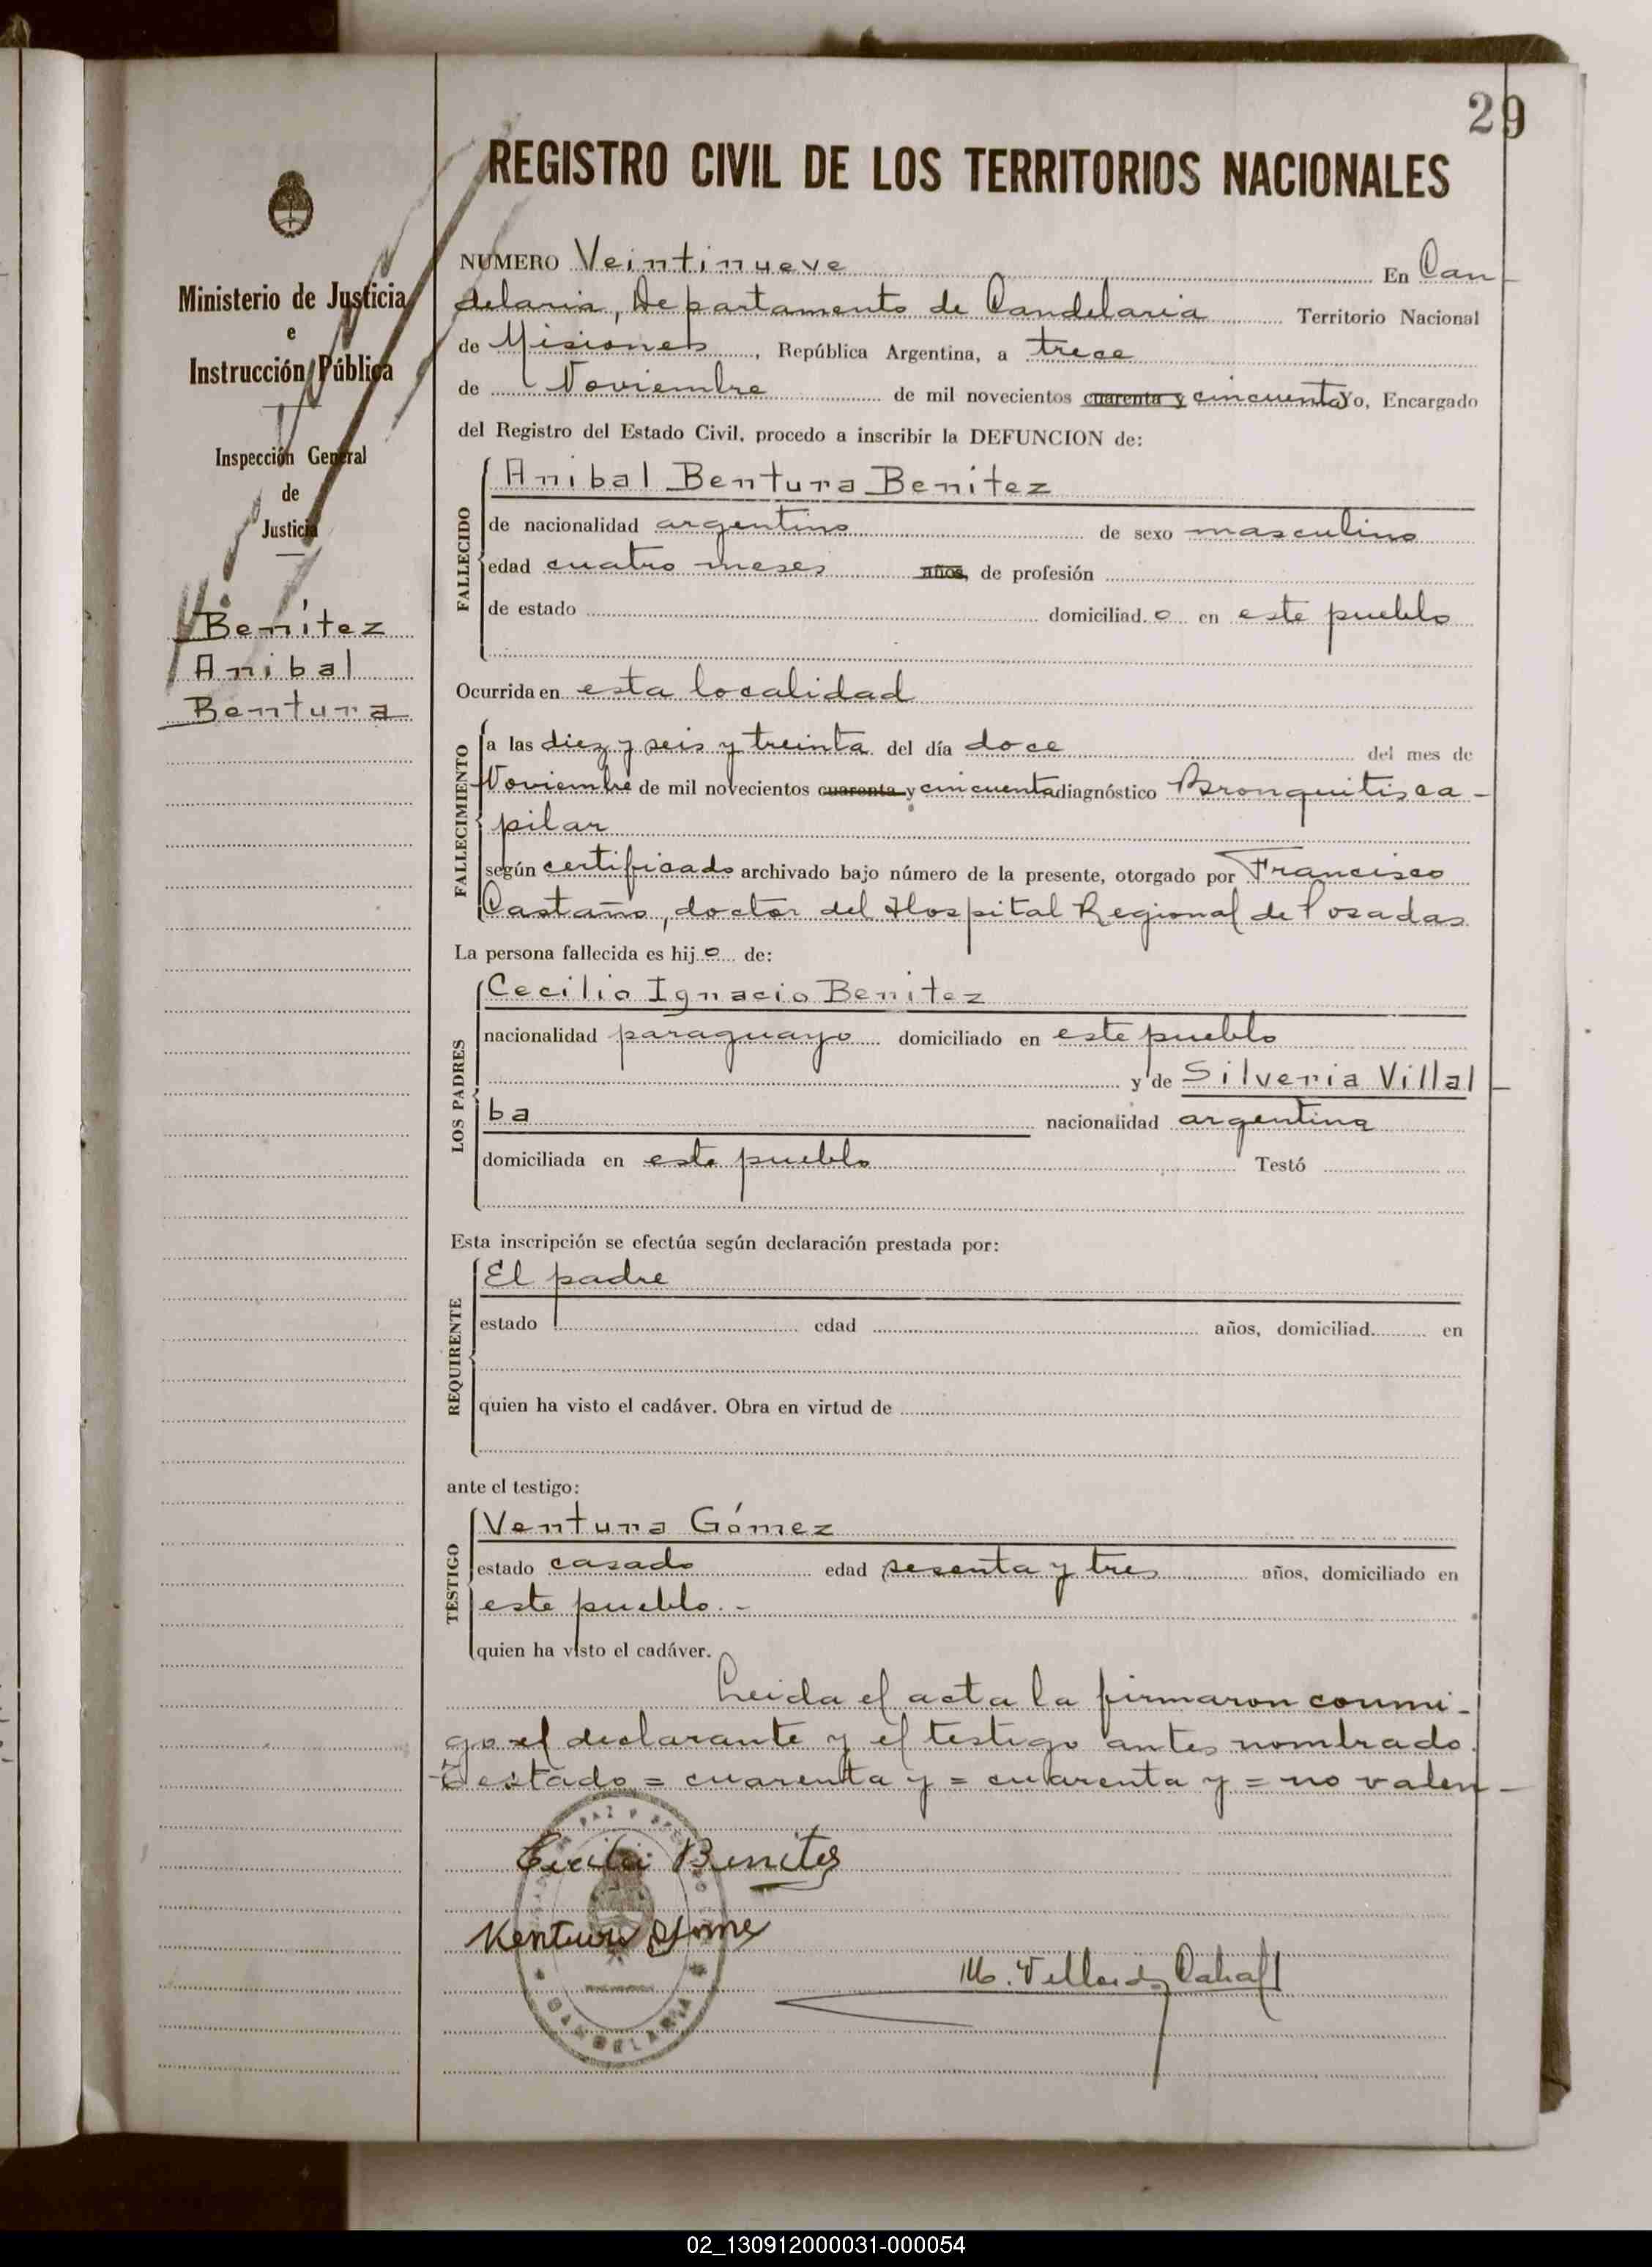 29
REGISTRO CIVIL DE LOS TERRITORIOS NACIONALES
Ministerio de Justicia
e
Instrucción Pública
Inspección General
de
Justicia
Benítez
Anibal
Bentura
NUMERO Veintinueve En Can-
delaria, Departamento de Candelaria Territorio Nacional
de Misiones, República Argentina, a trece
de Noviembre de mil novecientos cuarenta y cincuenta Yo, Encargado
del Registro del Estado Civil, procedo a inscribir la DEFUNCION de:
FALLECIDO
Anibal Bentura Benitez
de nacionalidad argentino de sexo masculino
edad cuatro meses años, de profesión
de estado domiciliad o en este pueblo
Ocurrida en esta localidad
FALLECIMIENTO
a las diez y seis y treinta del día doce del mes de
Noviembre de mil novecientos cuarenta y cincuenta diagnóstico Bronquitis ca-
pilar
según certificado archivado bajo número de la presente, otorgado por Francisco
Castaño, doctor del Hospital Regional de Posadas
La persona fallecida es hij o de:
LOS PADRES
Cecilio Ignacio Benitez
nacionalidad paraguayo domiciliado en este pueblo
y de Silveria Villal-
ba nacionalidad argentina
domiciliada en este pueblo Testó
Esta inscripción se efectúa según declaración prestada por:
REQUIRENTE
El padre
estado edad años, domiciliad en
quien ha visto el cadáver. Obra en virtud de
ante el testigo:
TESTIGO
Ventura Gómez
estado casado edad sesenta y tres años, domiciliado en
este pueblo.-
quien ha visto el cadáver.
Leida el acta la firmaron conmi-
go el declarante y el testigo antes nombrado.
Testado = cuarenta y = cuarenta y = no valen-
Benites
Ventura
CANDELARIA
02_130912000031-000054